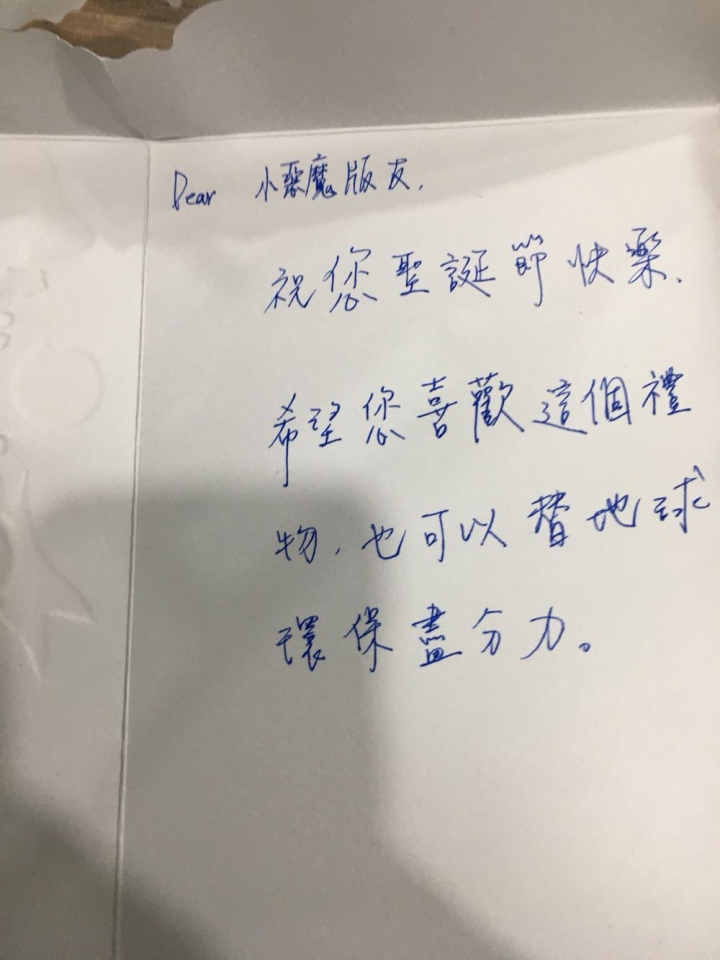 Dear 小惡魔版友,
祝您聖誕節快樂.
希望您喜歡這個禮
物,也可以替地球
環保盡分力。